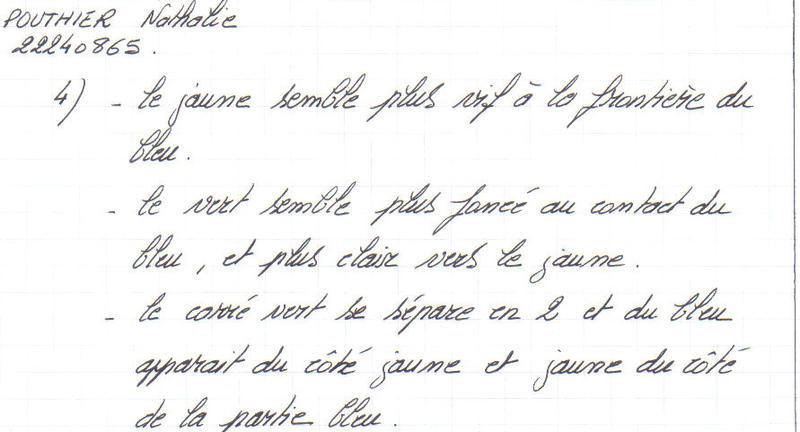 POUTHIER Nathalie
22240865.
4) - le jaune semble plus vif à la frontière du
bleu.
- le vert semble plus foncé au contact du
bleu, et plus clair vers le jaune.
- le carré vert se sépare en 2 et du bleu
apparait du côté jaune et jaune du côté
de la partie bleu.